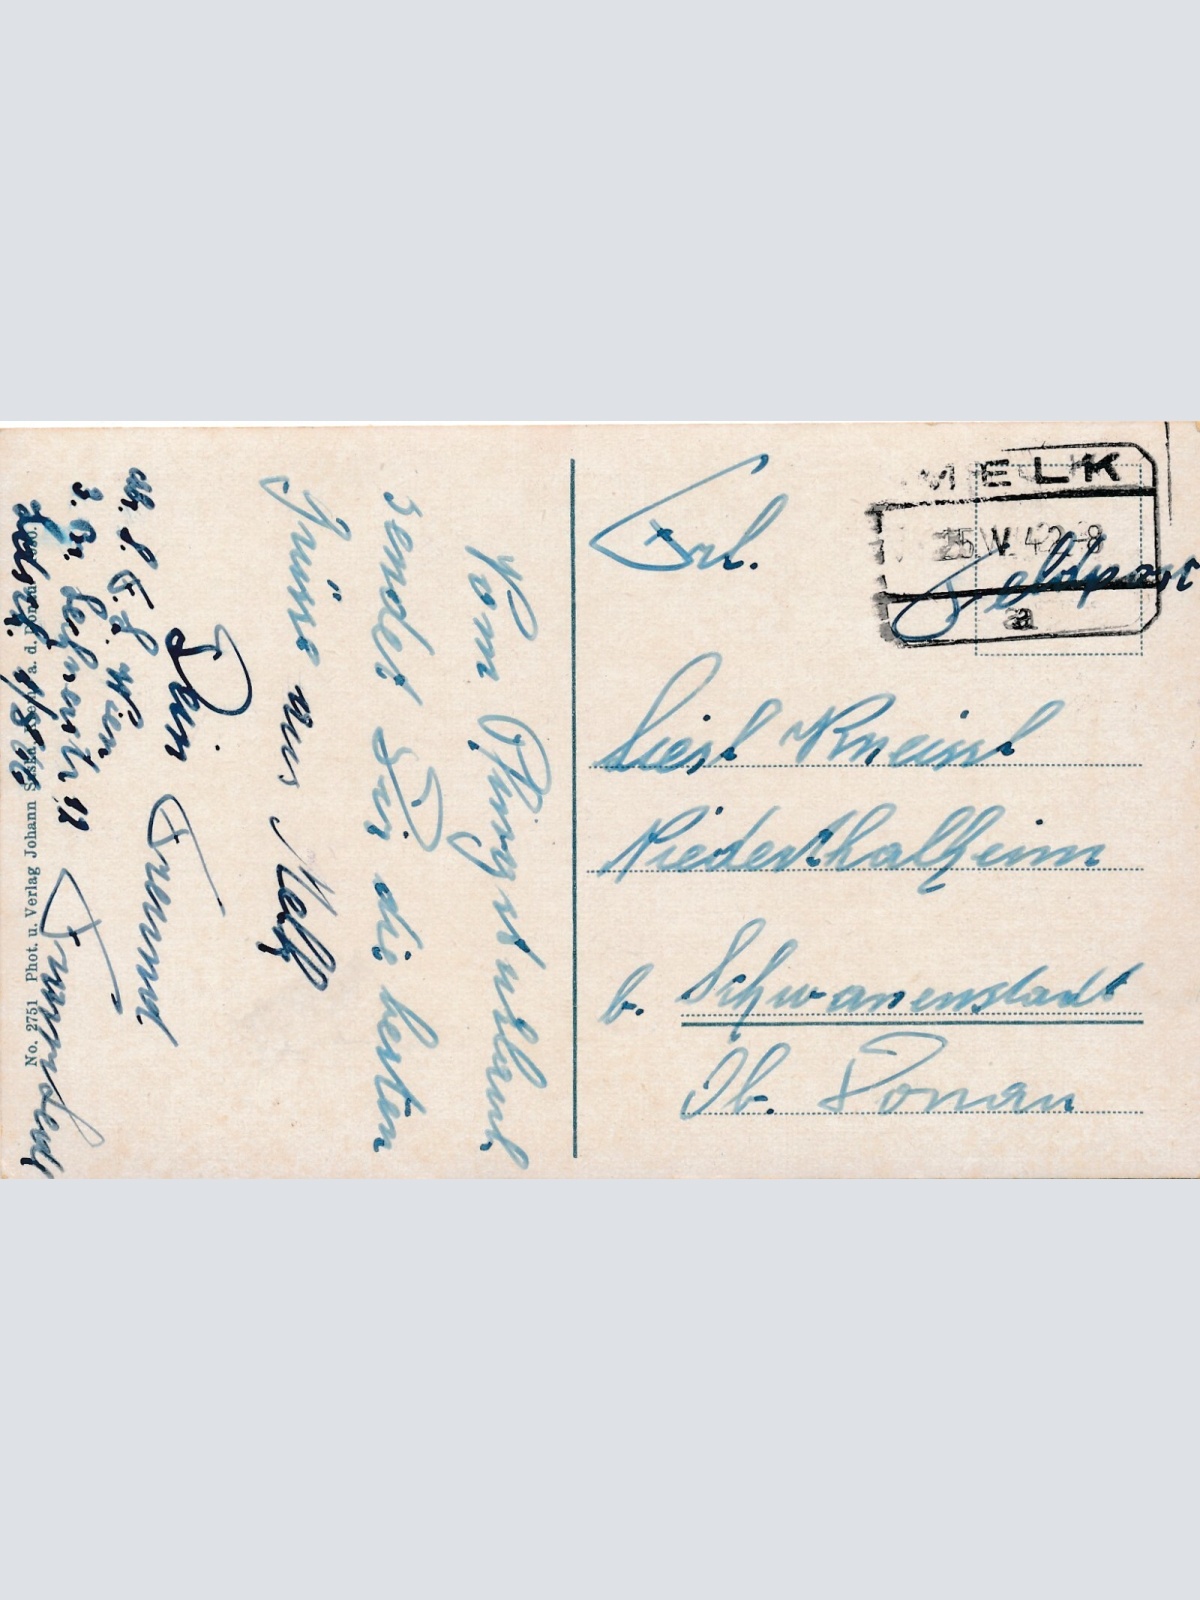 Vom Pfingsturlaub
sendet Dir die besten
Grüsse aus Melk
Dein Freund
Abs. S. F. L. Wien
3. Gr. Lechnerstr. 12
No. 2751 Phot. u. Verlag Johann a. d. Donau
MELK
25.V.42-8
a
Feldpost
Frl.
Liesl Kneissl
Niederthalheim
b. Schwanenstadt
Ob. Donau